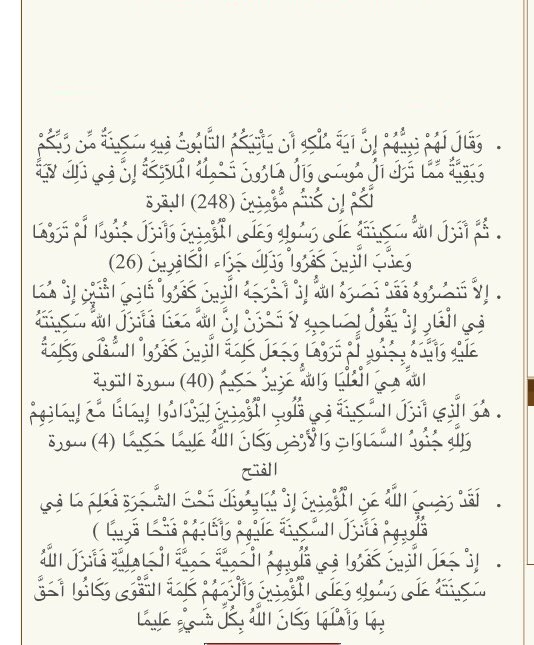 . وَقَالَ لَهُمْ نِبِيُّهُمْ إِنَّ آيَةَ مُلْكِهِ أَن يَأْتِيَكُمُ التَّابُوتُ فِيهِ سَكِينَةٌ مِّن رَّبِّكُمْ
وَبَقِيَّةٌ مِّمَّا تَرَكَ آلُ مُوسَى وَآلُ هَارُونَ تَحْمِلُهُ الْمَلآئِكَةُ إِنَّ فِي ذَلِكَ لآيَةً
لَّكُمْ إِن كُنتُم مُّؤْمِنِينَ (248) البقرة
. ثُمَّ أَنَزلَ اللّهُ سَكِينَتَهُ عَلَى رَسُولِهِ وَعَلَى الْمُؤْمِنِينَ وَأَنزَلَ جُنُودًا لَّمْ تَرَوْهَا
وَعذَّبَ الَّذِينَ كَفَرُواْ وَذَلِكَ جَزَاء الْكَافِرِينَ (26)
. إِلاَّ تَنصُرُوهُ فَقَدْ نَصَرَهُ اللّهُ إِذْ أَخْرَجَهُ الَّذِينَ كَفَرُواْ ثَانِيَ اثْنَيْنِ إِذْ هُمَا
فِي الْغَارِ إِذْ يَقُولُ لِصَاحِبِهِ لاَ تَحْزَنْ إِنَّ اللّهَ مَعَنَا فَأَنزَلَ اللّهُ سَكِينَتَهُ
عَلَيْهِ وَأَيَّدَهُ بِجُنُودٍ لَّمْ تَرَوْهَا وَجَعَلَ كَلِمَةَ الَّذِينَ كَفَرُواْ السُّفْلَى وَكَلِمَةُ
اللّهِ هِيَ الْعُلْيَا وَاللّهُ عَزِيزٌ حَكِيمٌ (40) سورة التوبة
. هُوَ الَّذِي أَنزَلَ السَّكِينَةَ فِي قُلُوبِ الْمُؤْمِنِينَ لِيَزْدَادُوا إِيمَانًا مَّعَ إِيمَانِهِمْ
وَلِلَّهِ جُنُودُ السَّمَاوَاتِ وَالْأَرْضِ وَكَانَ اللَّهُ عَلِيمًا حَكِيمًا (4) سورة
الفتح
. لَقَدْ رَضِيَ اللَّهُ عَنِ الْمُؤْمِنِينَ إِذْ يُبَايِعُونَكَ تَحْتَ الشَّجَرَةِ فَعَلِمَ مَا فِي
قُلُوبِهِمْ فَأَنزَلَ السَّكِينَةَ عَلَيْهِمْ وَأَثَابَهُمْ فَتْحًا قَرِيبًا )
. إِذْ جَعَلَ الَّذِينَ كَفَرُوا فِي قُلُوبِهِمُ الْحَمِيَّةَ حَمِيَّةَ الْجَاهِلِيَّةِ فَأَنزَلَ اللَّهُ
سَكِينَتَهُ عَلَى رَسُولِهِ وَعَلَى الْمُؤْمِنِينَ وَأَلْزَمَهُمْ كَلِمَةَ التَّقْوَى وَكَانُوا أَحَقَّ
بِهَا وَأَهْلَهَا وَكَانَ اللَّهُ بِكُلِّ شَيْءٍ عَلِيمًا